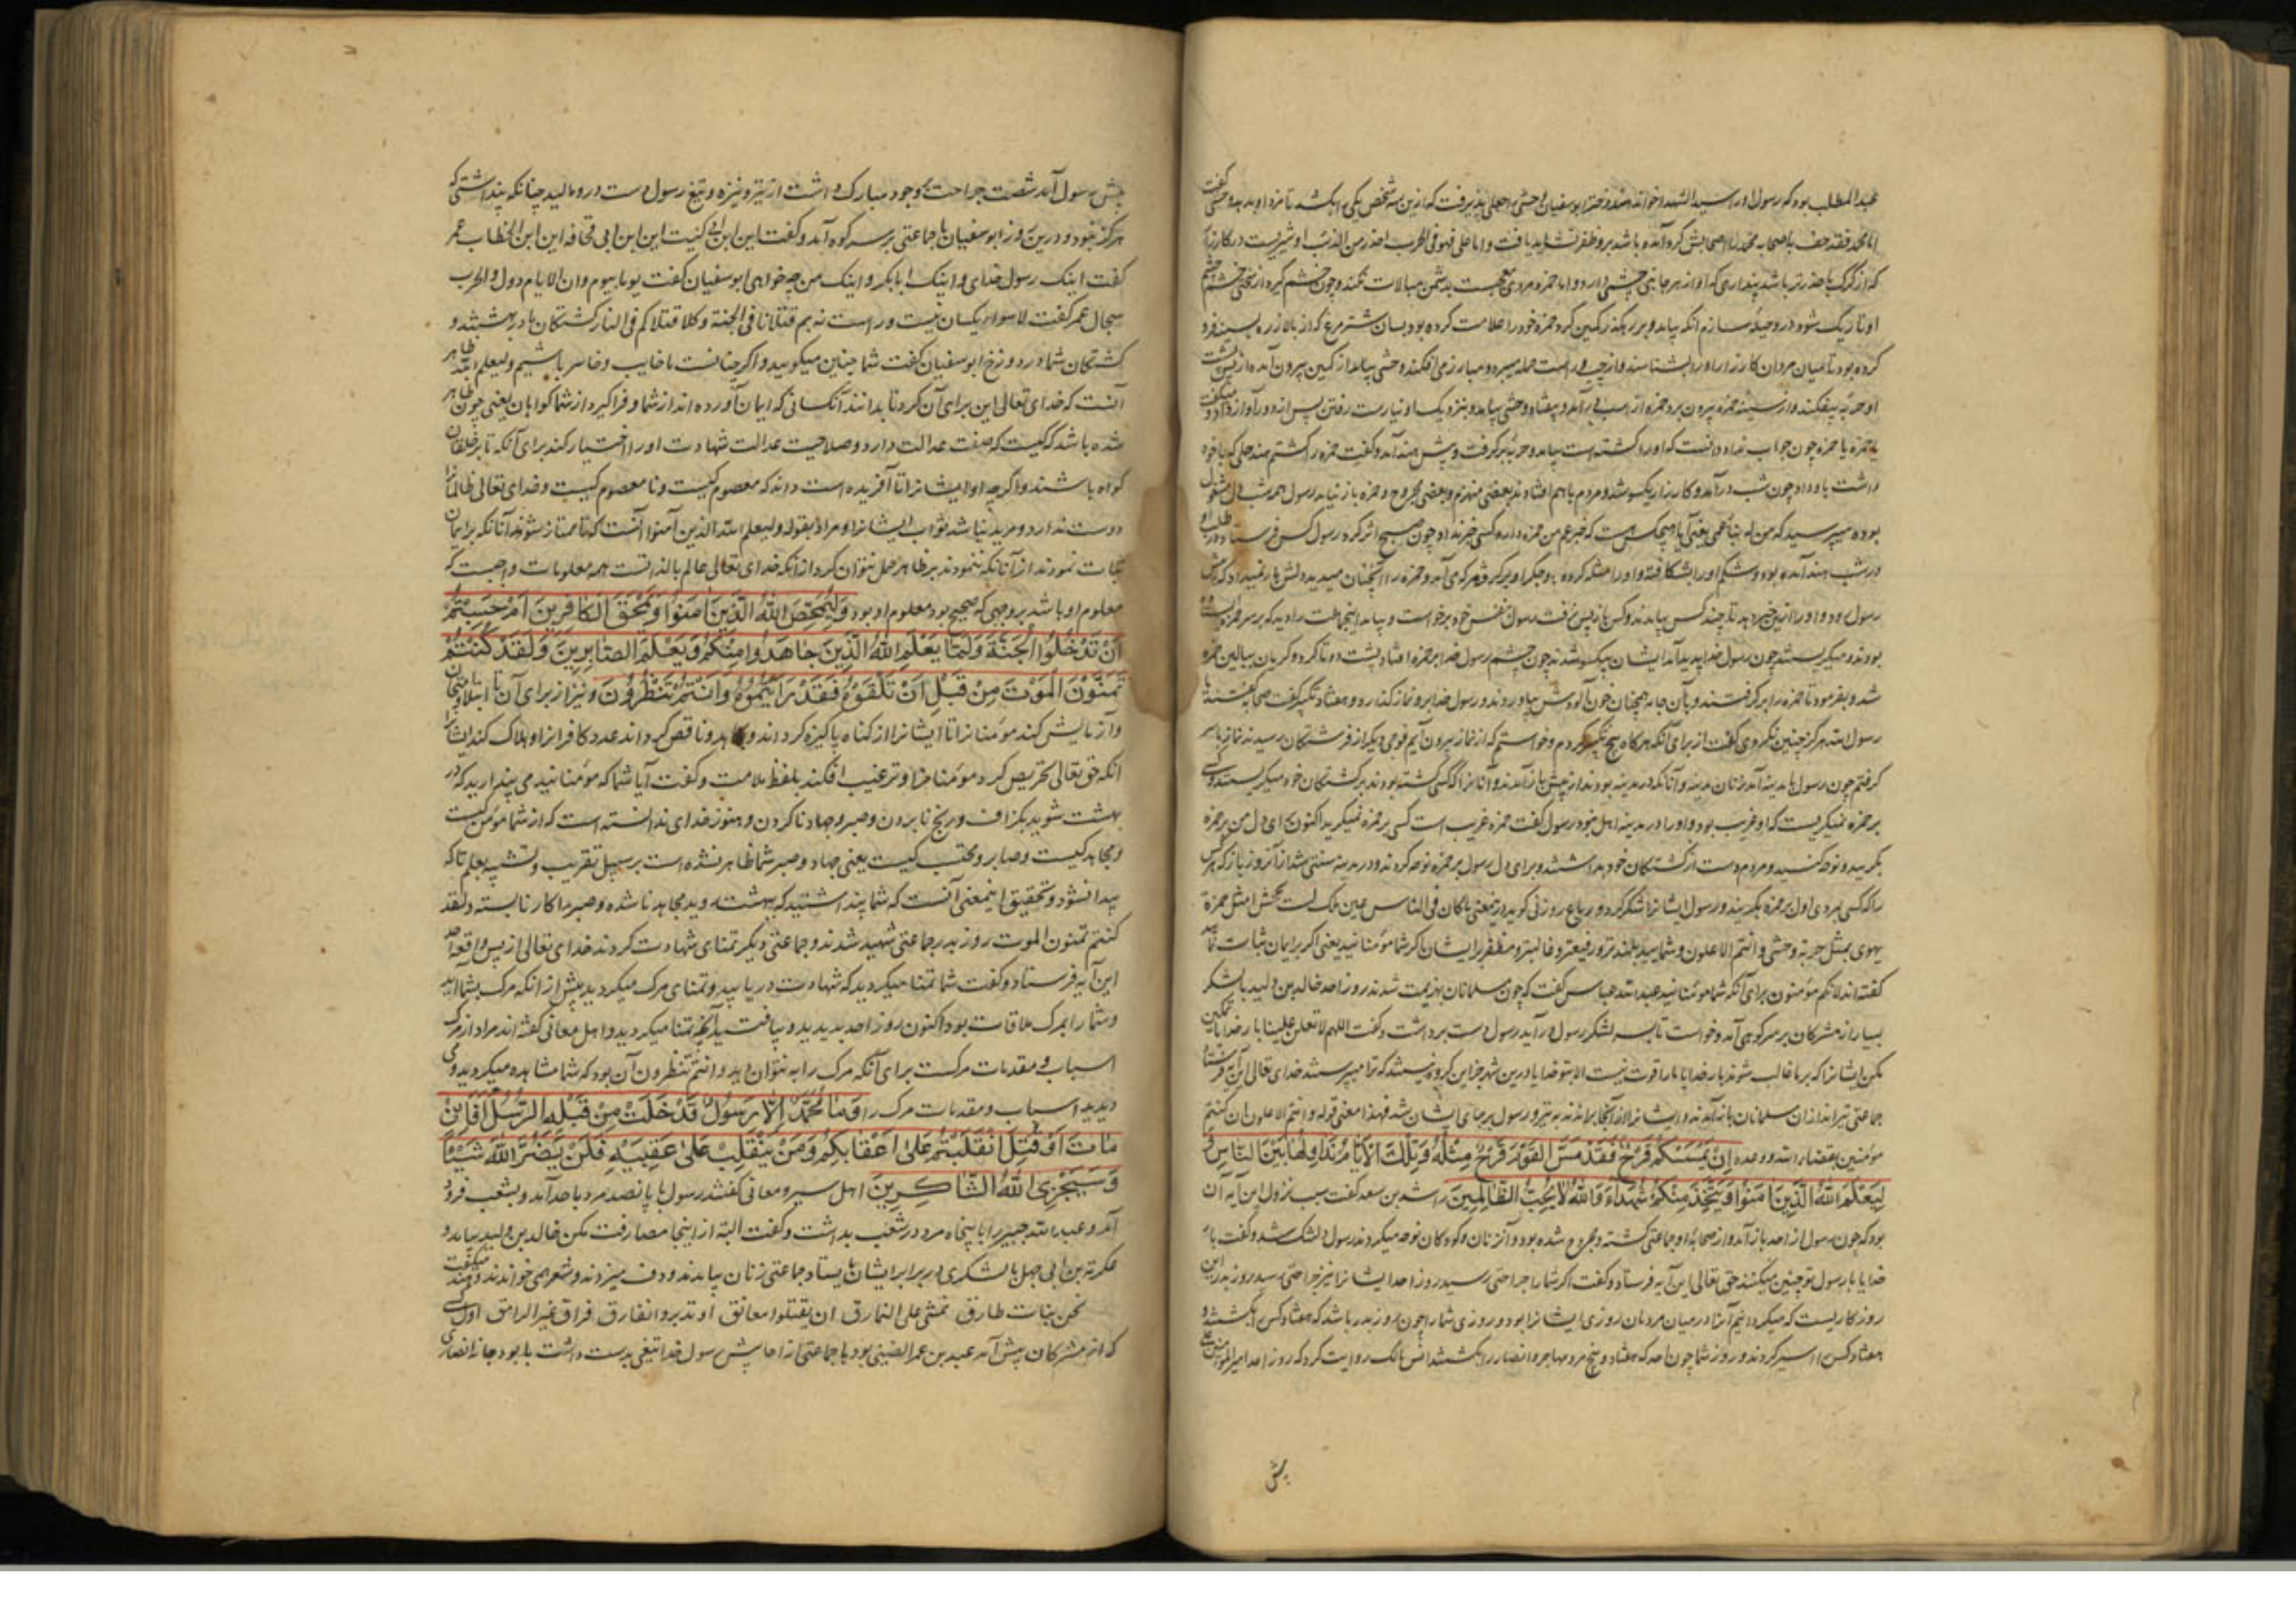 عبدالمطلب بود که رسول او را سید الشهدا خواند هند دختر ابوسفیان وحشی را جعلی پذیرفت که ازین سه شخص یکی را بکشد تا مزد او بدهد وحشی گفت
اما محمد فقد حف باصحابه محمد را اصحابش گرد آمده باشد برو ظفر نشاید یافت و اما علی فهو فی الحرب احذر من الذئب او شیریست در کارزار
که از گرگ با حذرتر باشد پنداری که او از هر جانبی چشمی دارد و اما حمزه مردی معجبست بدشمن مبالات نکند و چون خشم گیرد از سختی خشم چشم
او تاریک شود در وی حیله سازم آنکه بیامد و بر رهگذر کمین کرد حمزه خود را علامت کرده بود بسان شترمرغ که از بالا زره بسینه فرو
کرده بود تا میان مردان کارزار او را بشناسند و از چپ و راست حمله میبرد و مبارز می‌افکند وحشی بیامد از کمین بیرون آمد از پس پشت
او حربه بیفکند و از سینه حمزه بیرون برد حمزه از اسب در آمد و بیفتاد وحشی بیامد و بنزدیک او نیارست رفتن پس از دور آواز داد و میگفت
یا حمزه یا حمزه چون جواب نداد دانست که او را کشته است بیامد و حربه برگرفت و پیش هند آمد و گفت حمزه را کشتم هند حلی که با خود
داشت باو داد چون شب در آمد و کارزار یکسو شد و مردم با هم افتادند بعضی منهزم و بعضی مجروح و حمزه باز نیامد رسول همه شب دل مشغول
بوده میپرسید که من له بنبأ عمی یعنی آیا هیچکس هست که خبر عم من حمزه دارد کسی خبر نداد چون صبح اثر کرد رسول کس فرستاد در طلب او
در شب هند آمده بود و شکم او را بشکافته و او را مثله کرده و جگر او بر گرفته هر که می‌آمد و حمزه را آنچنان میدید دلش بار نمیداد که پیش
رسول رود و او را ازین خبر دهد تا چند کس بیامدند و کس باز پس نرفت رسول بنفس خود برخاست و بیامد اینجماعت را دید که بر سر حمزه ایستاده
بودند و میگریستند چون رسول خدا پدید آمد ایشان بیکسو شدند چون چشم رسول خدا بر حمزه افتاد پشت دو تا کرد و گریان ببالین حمزه
شد و بفرمود تا حمزه را بر گرفتند و بآن جامه همچنان خون آلودش بیاوردند و رسول خدا برو نماز گذارد و هفتاد تکبیر گفت صحابه گفتند یا
رسول الله هرگز چنین نکردی گفت از برای آنکه هرگاه پنج تکبیر کردم و خواستم که از نماز بیرون آیم فوجی دیگر از فرشتگان رسیدند نماز با سر
گرفتم چون رسول بمدینه آمد زنان مدینه و آنانکه در مدینه بودند از پیش باز آمدند و آنانرا که کسی کشته بودند بر کشتگان خود میگریستند و کسی
بر حمزه نمیگریست که او غریب بود و او را در مدینه اهل نبود رسول گفت حمزه غریب است کسی بر حمزه نمیگرید اکنون برای دل من بر حمزه
بگریید و نوحه کنید و مردم دست از کشتگان خود بداشتند و برای دل رسول بر حمزه نوحه کردند و در مدینه سنتی شد از آنروز باز که هر کس
را که کسی بمردی اول بر حمزه بگریند و رسول ایشانرا شکر کرد
یهوی بمثل حربة وحشی و انتم الاعلون و شمایید بلندتر و رفیعتر و غالبتر و مظفر بر ایشان اگر شما مؤمنانید یعنی اگر بر ایمان ثابت
گفته‌اند لانکم مؤمنون برای آنکه شما مؤمنانید عبدالله عباس گفت که چون مسلمانان بهزیمت شدند روز احد خالد بن ولید با لشکر
بسیار از مشرکان بر سر کوهی آمد و خواست تا بسر لشکر رسول در آید رسول دست برداشت و گفت اللهم لا تعلن علینا بار خدایا تمکین
مکن ایشانرا که بر ما غالب شوند بار خدایا ما را قوت نیست الا بتو خدایا درین شهر جز این گروه نیستند که ترا میپرستند خدای تعالی این آیه فرستاد
جماعتی تیراندازان مسلمانان باز آمدند و ایشانرا از آنجا براندند به تیر و رسول بر جای ایشان شد فهذا معنی قوله و انتم الاعلون ان کنتم
مؤمنین بقضاء الله و وعده اِنْ یَمْسَسْکُمْ قَرْحٌ فَقَدْ مَسَّ الْقَوْمَ قَرْحٌ مِثْلُهُ وَتِلْکَ الْاَیَّامُ نُدَاوِلُهَا بَیْنَ النَّاسِ وَ
لِیَعْلَمَ اللّٰهُ الَّذِینَ اٰمَنُوا وَیَتَّخِذَ مِنْکُمْ شُهَدَاءَ وَاللّٰهُ لَا یُحِبُّ الظَّالِمِینَ راشد بن سعد گفت سبب نزول این آیه آن
بود که چون رسول از احد باز آمد و از صحابه او جماعتی کشته و مجروح شده بود و آن زنان و کودکان نوحه میکردند رسول دلتنگ شد و گفت بار
خدایا با رسول تو چنین میکنند حق تعالی این آیه فرستاد و گفت اگر شما را جراحتی رسید روز احد ایشانرا نیز جراحتی رسید روز بدر این
روزگاریست که میگردانیم آنرا در میان مردمان روزی ایشانرا بود و روزی شما را چون روز بدر باشد که هفتاد کس را بکشتند و
هفتاد کس را اسیر کردند و روز شما چون احد که هفتاد و پنج مرد مهاجر و انصار را بکشتند انس مالک روایت کرد که روز احد امیر المؤمنین علی
پیش
پیش رسول آمد شصت جراحت بوجود مبارک داشت از تیر و نیزه و تیغ رسول دست درو مالید چنانکه پنداشتی که
هرگز نبود و درین روز ابوسفیان با جماعتی بر سر کوه آمد و گفت این ابن ابی کبشه این ابن ابی قحافه این ابن الخطاب عمر
گفت اینک رسول خدای و اینک ابابکر و اینک من چه خواهی ابوسفیان گفت یوما بیوم و ان الایام دول و الحرب
سجال عمر گفت لا سواء یکسان نیست و راست نه هم قتلانا فی الجنة و کلا قتلاکم فی النار کشتگان ما در بهشتند و
کشتگان شما در دوزخ ابوسفیان گفت شما چنین میگویید و اگر چنانست ما خایب و خاسر باشیم و لیعلم الله ظاهر
آنست که خدای تعالی این برای آن کرد تا بدانند آنکسانی که ایمان آورده‌اند از شما و فرا گیرد از شما گواهان یعنی چون ظاهر
شده باشد که کیست که صفت عدالت دارد و صلاحیت عدالت شهادت او را اختیار کند برای آنکه تا بر خلقان
گواه باشند و اگر چه او ایشانرا تا آفریده است داند که معصوم کیست و نامعصوم کیست و خدای تعالی ظالمانرا
دوست ندارد و مرید نباشد ثواب ایشانرا و مراد بقوله و لیعلم الله الذین آمنوا آنست که تا ممتاز شوند آنانکه بر ایمان
ثبات نمودند از آنانکه ننمودند بر ظاهر حمل نتوان کرد از آنکه خدای تعالی عالم بالذاتست همه معلومات واجبست که
معلوم او باشد بر وجهی که صحیح بود معلوم او بود وَلِیُمَحِّصَ اللّٰهُ الَّذِینَ اٰمَنُوا وَیَمْحَقَ الْکَافِرِینَ اَمْ حَسِبْتُمْ
اَنْ تَدْخُلُوا الْجَنَّةَ وَلَمَّا یَعْلَمِ اللّٰهُ الَّذِینَ جَاهَدُوا مِنْکُمْ وَیَعْلَمَ الصَّابِرِینَ وَلَقَدْ کُنْتُمْ
تَمَنَّوْنَ الْمَوْتَ مِنْ قَبْلِ اَنْ تَلْقَوْهُ فَقَدْ رَاَیْتُمُوهُ وَاَنْتُمْ تَنْظُرُونَ و نیز از برای آن تا ابتلا و امتحان
و آزمایش کند مؤمنانرا تا ایشانرا از گناه پاکیزه گرداند و بکاهد و ناقص گرداند عدد کافرانرا و هلاک کند ایشانرا
آنکه حق تعالی تحریص کرد مؤمنانرا و ترغیب افکند بلفظ ملامت و گفت آیا شما که مؤمنانید می پندارید که در
بهشت شوید بگزاف و رنج نابردن و صبر و جهاد ناکردن و هنوز خدای ندانسته است که از شما مؤمن کیست
و مجاهد کیست و صابر و محتسب کیست یعنی جهاد و صبر شما ظاهر نشده است بر سبیل تقریب و تشبیه بعلم تا که
پیدا نشود و تحقیق اینمعنی آنست که شما پنداشتید که ببهشت روید مجاهد ناشده و صبر را کار نابسته و لقد
کنتم تمنون الموت روز بدر جماعتی شهید شدند و جماعتی دیگر تمنای شهادت کردند خدای تعالی از پس واقعه احد
این آیه فرستاد و گفت شما تمنا میکردید که شهادت دریابید و تمنای مرگ میکردید پیش از آنکه مرگ بشما آید
و شما را بمرگ ملاقات بود اکنون روز احد بدیدید و بیافتید آنچه تمنا میکردید و اهل معانی گفته‌اند مراد از مرگ
اسباب و مقدمات مرگست برای آنکه مرگ را به نتوان دید و انتم تنظرون آن بود که شما مشاهده میکردید و می
دیدید اسباب و مقدمات مرگ را وَمَا مُحَمَّدٌ اِلَّا رَسُولٌ قَدْ خَلَتْ مِنْ قَبْلِهِ الرُّسُلُ اَفَاِنْ
مَاتَ اَوْ قُتِلَ انْقَلَبْتُمْ عَلٰی اَعْقَابِکُمْ وَمَنْ یَنْقَلِبْ عَلٰی عَقِبَیْهِ فَلَنْ یَضُرَّ اللّٰهَ شَیْئًا
وَسَیَجْزِی اللّٰهُ الشَّاکِرِینَ اهل سیر و معانی گفتند رسول با پانصد مرد باحد آمد و بشعب فرود
آمد و عبدالله جبیر را با پنجاه مرد در شعب بداشت و گفت البته از اینجا مفارقت مکن خالد بن ولید بیامد و
عکرمة بن ابی جهل با لشکری در برابر ایشان بایستاد جماعتی زنان بیامدند و دف میزدند و شعر می‌خواندند و هند میگفت
نحن بنات طارق نمشی علی النمارق ان یقتلوا معانق او تدبروا نفارق فراق غیر الوامق اول کسی
که از مشرکان پیش آمد عبید بن عمر الضبی بود با جماعتی از رسول خدا تیغی بدست داشت انصاری